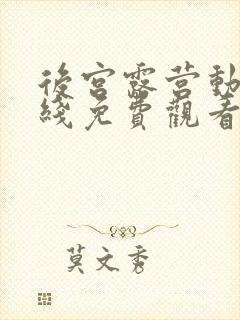 後宮露营動
綫免費觀看
莫文秀